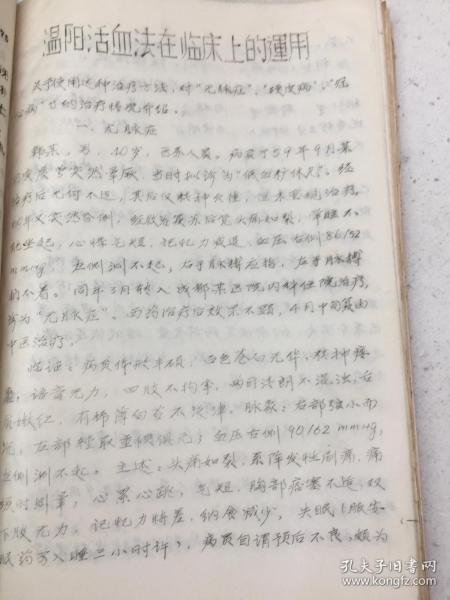 温阳活血法在临床上的運用
关于使用这种治疗方法,对"无脉症"、"硬皮病"、"冠
心病"等的治疗情况介绍。
一、无脉症
韩某,男,40岁,西苏人员。病员于59年9月某
突然晕厥,当时拟诊为"低血 
治疗后无何不适,其后仅精神欠佳,但未觉
年又突然昏倒,经 后觉头痛如裂,
起,心悸气短,记忆力减退,血压右侧86/52
mmHg,左侧测不起,右手脉搏应指,左手脉搏
扪不着。同年3月转入成都某医院内科住院治疗,
诊为"无脉症"。西药治疗后效果不显,4月中旬
中医治疗。
临证:病员体形丰硕,面色苍白无华,精神疲
惫,语音无力,四肢不拘挛,两目清朗不混浊,舌
质嫩红,有稀薄白苔不乏津。脉象:右部弦小而
沉,左部轻取重按俱无;血压右侧90/62mmHg,
左侧测不起。主述:头痛如裂,系阵发性剧痛,痛
时则晕,心累心跳,气短,胸部痞塞不适,双
下肢无力,记忆力特差,纳食减少,失眠(服安
眠药可入睡二小时许),病员自谓预后不良,颇为
孔夫子旧书网